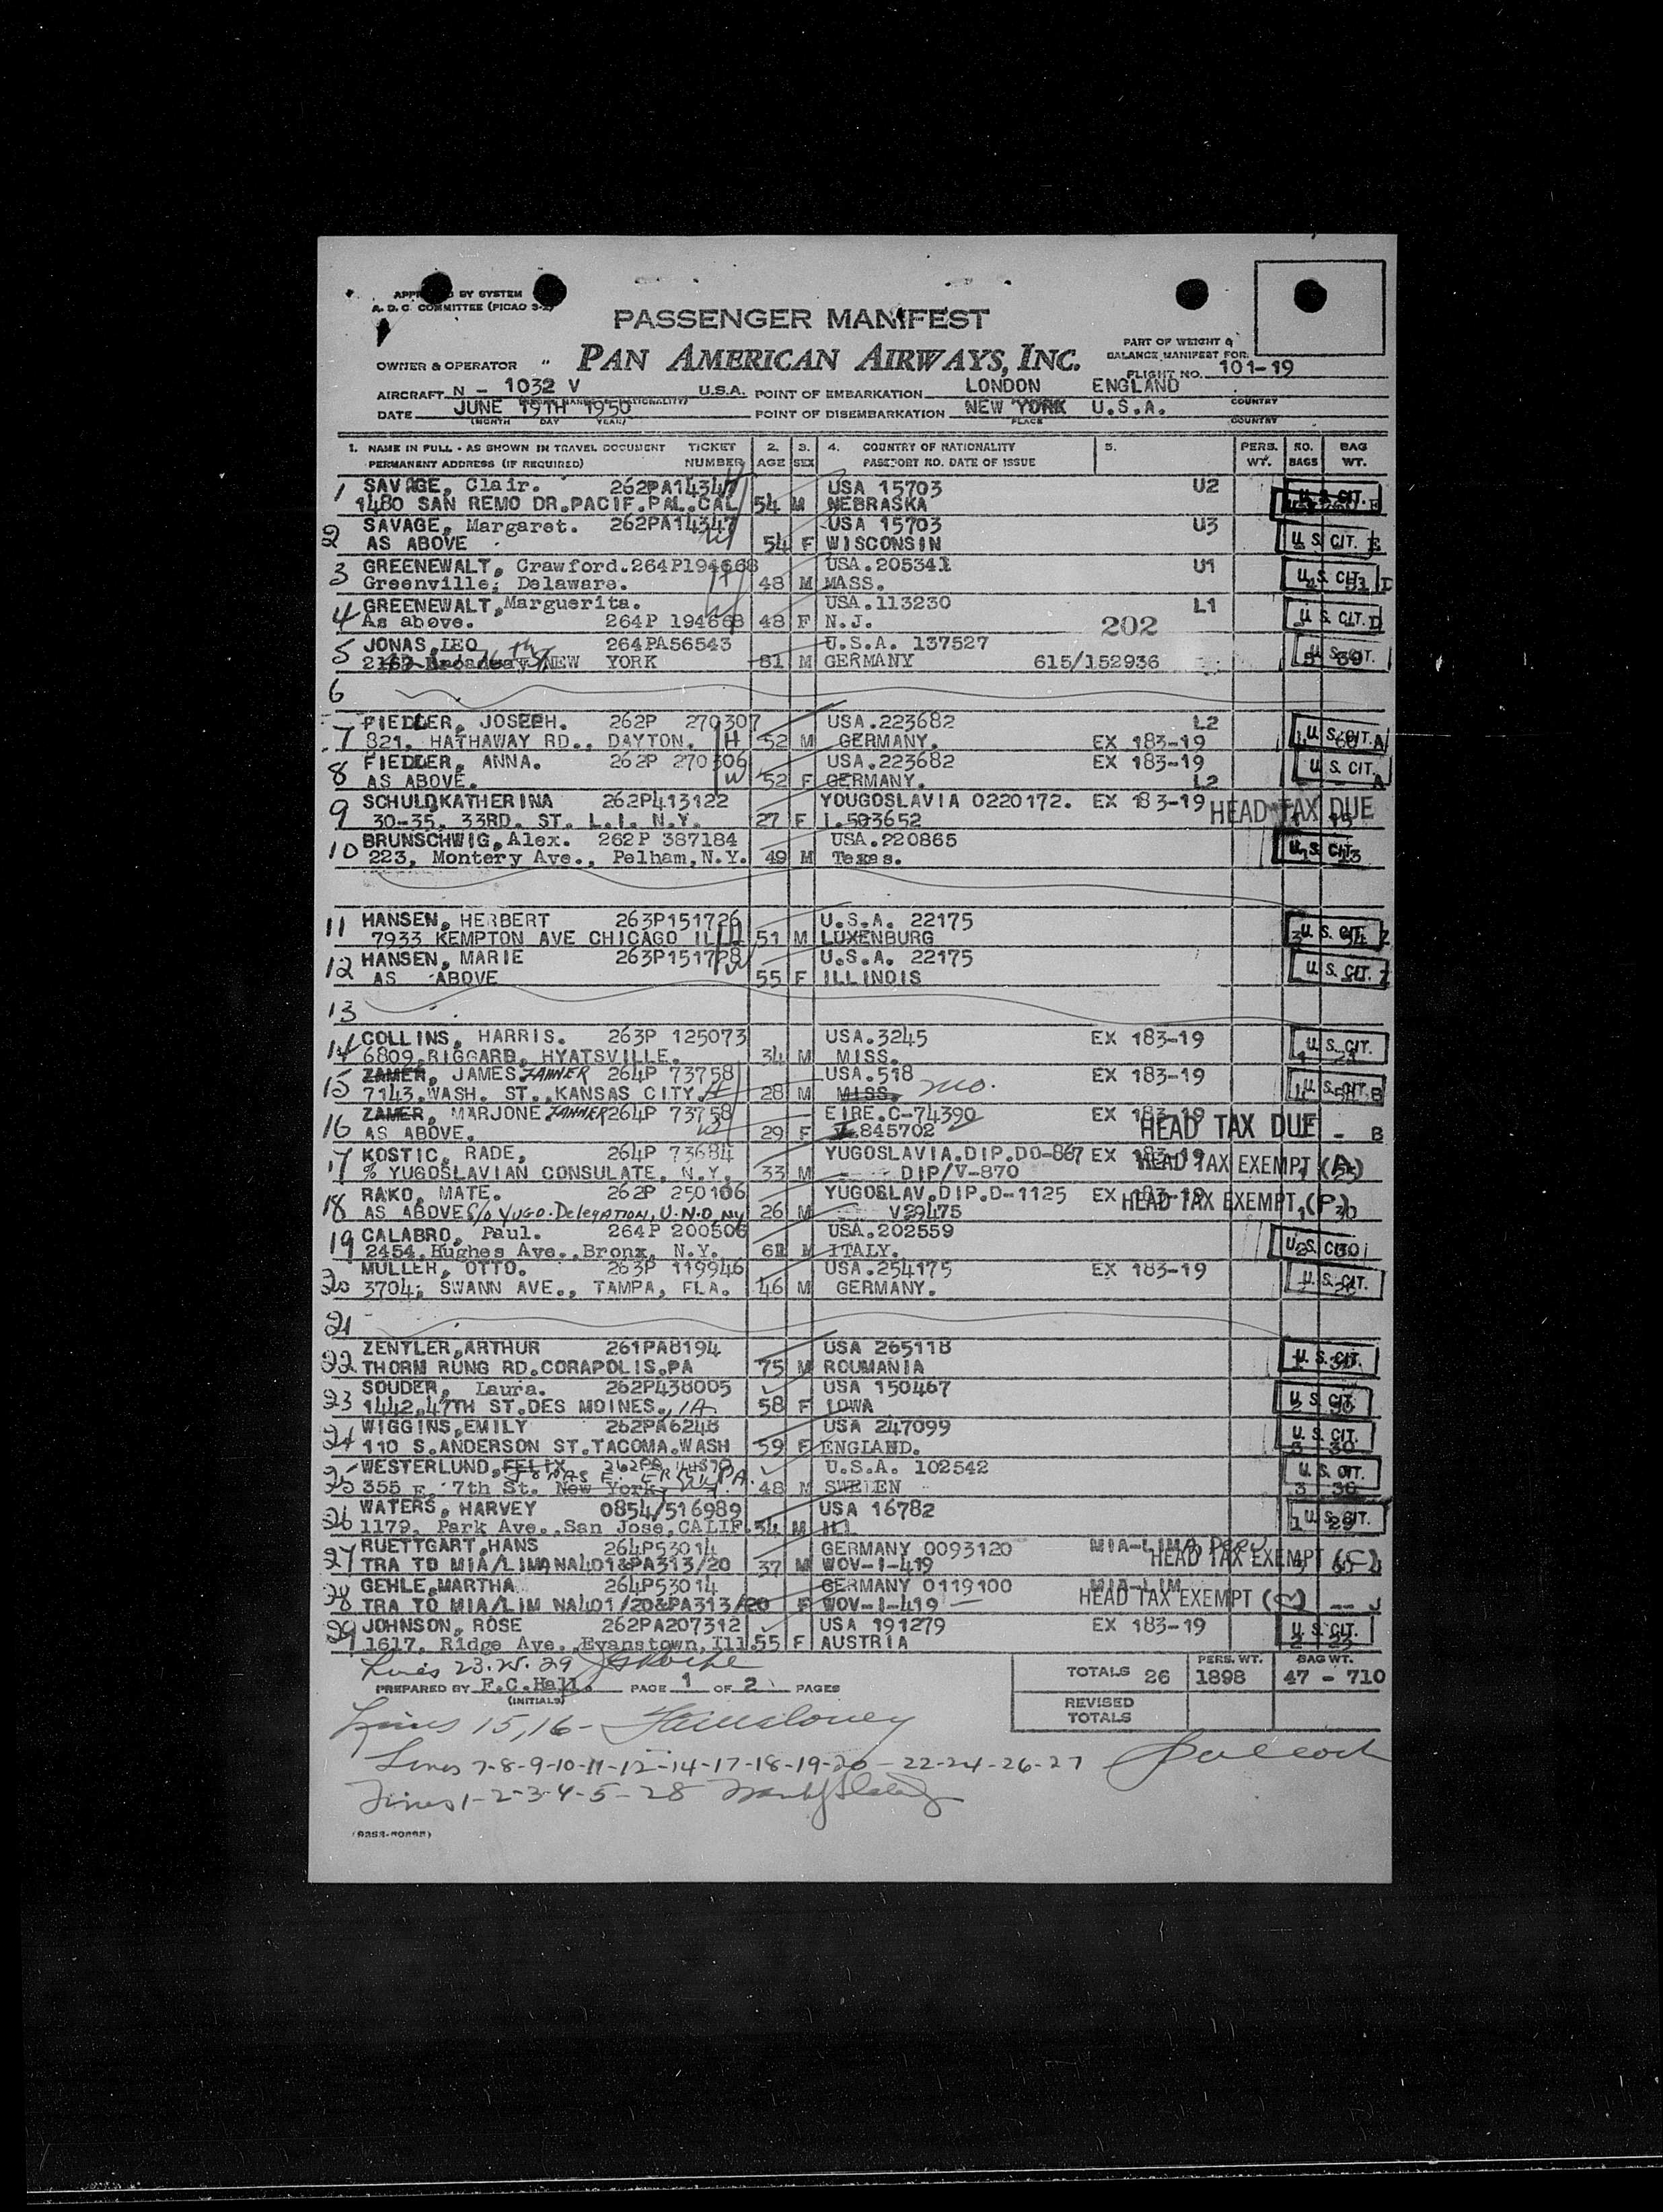 BY SYSTEM
A. D. C. COMMITTEE (PICAO
PASSENGER MANIFEST
PART OF WEIGHT &
BALANCE MANIFEST FOR:
OWNER & OPERATOR " PAN AMERICAN AIRWAYS, INC.
FLIGHT NO. 101-19
AIRCRAFT N - 1032 V U.S.A. POINT OF EMBARKATION LONDON ENGLAND
DATE JUNE 19TH 1950 POINT OF DISEMBARKATION NEW YORK U.S.A.
(MONTH DAY YEAR) PLACE COUNTRY
1. NAME IN FULL - AS SHOWN IN TRAVEL DOCUMENT TICKET 2. 3. 4. COUNTRY OF NATIONALITY 5. PERS. NO. BAG
PERMANENT ADDRESS (IF REQUIRED) NUMBER AGE SEX PASSPORT NO. DATE OF ISSUE WT. BAGS WT.
1 SAVAGE, Clair. 262PA14347 USA 15703 U2
1480 SAN REMO DR.PACIF.PAL.CAL 54 M NEBRASKA U.S. CIT.
2 SAVAGE, Margaret. 262PA14347 USA 15703 U3
AS ABOVE 54 F WISCONSIN U.S. CIT. E
3 GREENEWALT, Crawford. 264P194668 USA.205341 U1
Greenville; Delaware. 48 M MASS. U.S. CIT. D
4 GREENEWALT, Marguerita. USA.113230 L1
As above. 264P 194668 48 F N.J. 202 U.S. CIT. D
5 JONAS, LEO 264PA56543 U.S.A. 137527
NEW YORK 61 M GERMANY 615/152936 U.S. CIT.
6
7 FIEDLER, JOSEPH. 262P 270307 USA.223682 L2
821, HATHAWAY RD., DAYTON. H 52 M GERMANY. EX 183-19 U.S. CIT. A
8 FIEDLER, ANNA. 262P 270306 USA.223682 EX 183-19
AS ABOVE. W 52 F GERMANY. L2 U.S. CIT. A
9 SCHULD,KATHERINA 262P413122 YOUGOSLAVIA 0220172. EX 183-19 HEAD TAX DUE
30-35, 33RD. ST. L.I. N.Y. 27 F I.503652
10 BRUNSCHWIG, Alex. 262P 387184 USA.220865
223, Montery Ave., Pelham, N.Y. 49 M Texas. U.S. CIT.
11 HANSEN, HERBERT 263P151726 U.S.A. 22175
7933 KEMPTON AVE CHICAGO ILL 51 M LUXENBURG U.S. CIT. Z
12 HANSEN, MARIE 263P151728 U.S.A. 22175
AS ABOVE 55 F ILLINOIS U.S. CIT. Z
13
14 COLLINS, HARRIS. 263P 125073 USA.3245 EX 183-19
6809, RIGGARD, HYATSVILLE. 34 M MISS. U.S. CIT.
15 ZAMER, JAMES ZAHNER 264P 73758 USA.518 EX 183-19
7143, WASH. ST., KANSAS CITY. H 28 M MISS. MO. U.S. CIT. B
16 ZAMER, MARJONE ZAHNER 264P 73758 EIRE.C-74390 EX 183-19
AS ABOVE. W 29 F V.845702 HEAD TAX DUE - B
17 KOSTIC, RADE, 264P 73684 YUGOSLAVIA.DIP.DO-867 EX 183-19
% YUGOSLAVIAN CONSULATE, N.Y. 33 M DIP/V-870 HEAD TAX EXEMPT (A)
18 RAKO, MATE. 262P 250106 YUGOSLAV.DIP.D-1125 EX 183-19
AS ABOVE C/O YUGO. Delegation, U.N.O NY 26 M V29475 HEAD TAX EXEMPT (P)
19 CALABRO, Paul. 264P 200506 USA.202559
2454, Hughes Ave., Bronx, N.Y. 61 M ITALY. U.S. CIT.
20 MULLER, OTTO. 263P 119946 USA.254175 EX 183-19
3704, SWANN AVE., TAMPA, FLA. 46 M GERMANY. U.S. CIT.
21
22 ZENTLER,ARTHUR 261PA8194 USA 265118
THORM RUNG RD.CORAPOLIS.PA 75 M ROUMANIA U.S. CIT.
23 SOUDER, Laura. 262P438005 USA 150467
1442,47TH ST.DES MOINES. IA 58 F IOWA U.S. CIT.
24 WIGGINS,EMILY 262PA6248 USA 247099
110 S.ANDERSON ST.TACOMA.WASH 59 F ENGLAND. U.S. CIT.
25 WESTERLUND, FELIX U.S.A. 102542
355 E. 7th St. New York, PA. 48 M SWEDEN U.S. CIT.
26 WATERS, HARVEY 0854/516989 USA 16782
1179, Park Ave., San Jose, CALIF. 54 M Ill U.S. CIT.
27 RUETTGART,HANS 264P53014 GERMANY 0093120 MIA-LIMA, Peru
TRA TO MIA/LIMA NA401&PA313/20 37 M WOV-I-419 HEAD TAX EXEMPT (C)
28 GEHLE,MARTHA 264P53014 GERMANY 0119100 MIA-LIM
TRA TO MIA/LIM NA401/20&PA313/20 F WOV-I-419 HEAD TAX EXEMPT -- J
29 JOHNSON, ROSE 262PA207312 USA 191279 EX 183-19
1617, Ridge Ave., Evanstown, Ill. 55 F AUSTRIA U.S. CIT.
Lines 23. 25. 29
PERS. WT. BAG WT.
TOTALS 26 1898 47 - 710
PREPARED BY F.C.Hall. PAGE 1 OF 2 PAGES
(INITIALS)
REVISED
TOTALS
Lines 15,16-
Lines 7-8-9-10-11-12-14-17-18-19-20-22-24-26-27
Lines 1-2-3-4-5-28